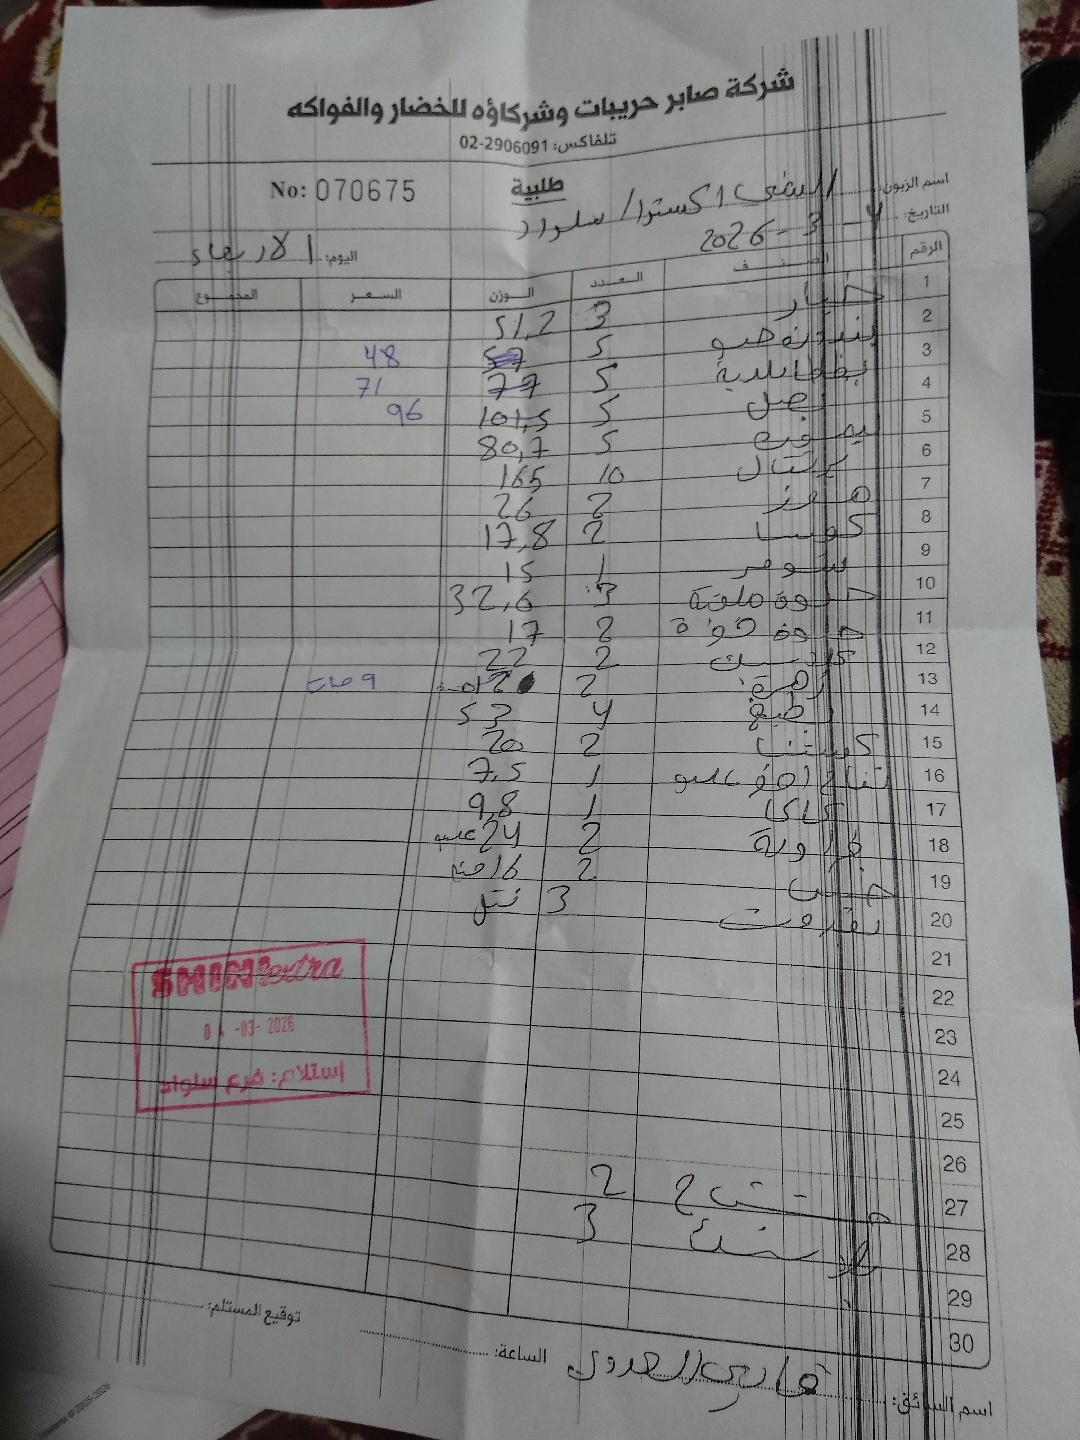 شركة صابر حريبات وشركاؤه للخضار والفواكه
تلفاكس: 02-2906091
No: 070675
طلبية
اسم الزبون: الشني اكسترا / سلواد
التاريخ: 4 - 3 - 2026
اليوم: الاربعاء
الرقم الصنف العدد الوزن السعر المجموع
1 خيار 3 51,2
2 بندورة 5 57 48
3 بطاطا بلدية 5 77 71
4 بصل 5 101,5 96
5 ليمون 5 80,7
6 برتقال 10 165
7 موز 2 26
8 كوسا 2 17,8
9 شومر 1 15
10 3 32,6
11 2 17
12 2 22
13 زهرة 2 12 9
14 4 53
15 كستنا 2 20
16 تفاح 1 7,5
17 1 9,8
18 فراولة 2 24 علبه
19 خس 2 16
20 3
21
22
23
24
25
26
27 2
28 3
29
30
SHINI extra
04-03-2026
إستلام: فرع سلواد
توقيع المستلم:
الساعة:
اسم السائق: